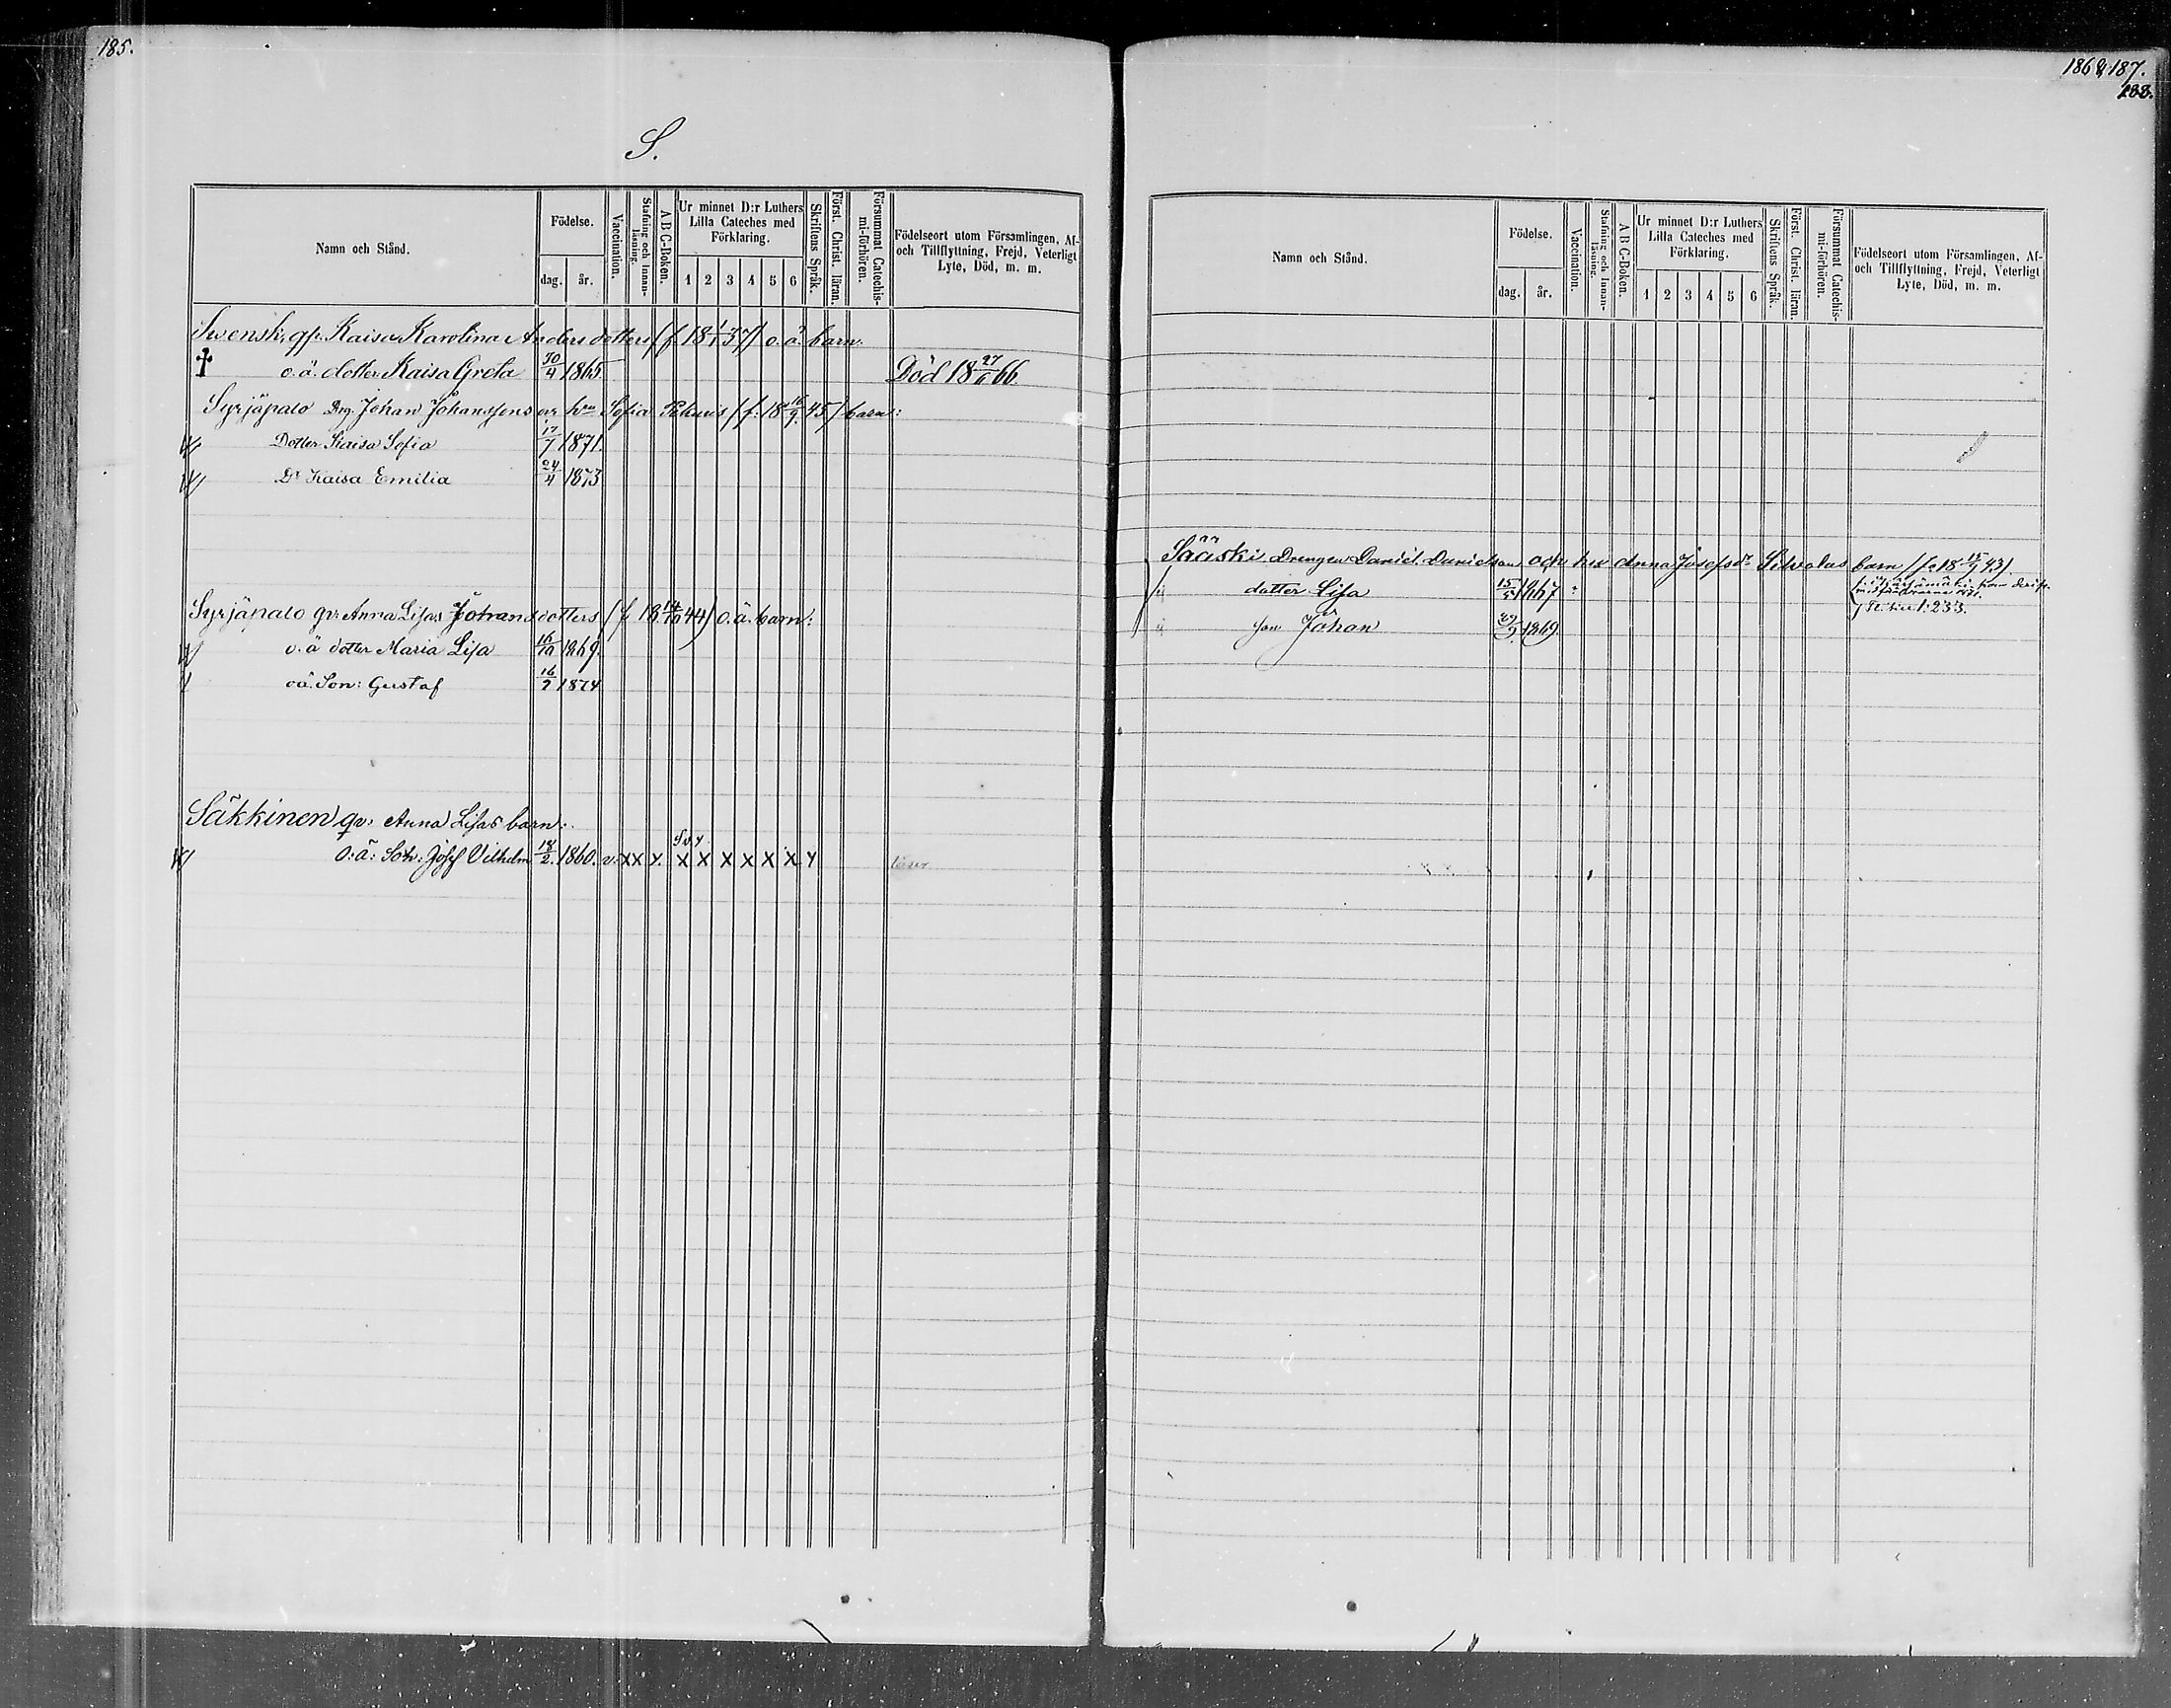 185.
S.
Namn och Stånd.
Födelse.
dag. år.
Vaccination.
Stafning och Innanläsning.
A B C-Boken.
Ur minnet D:r Luthers Lilla Cateches med Förklaring.
1 2 3 4 5 6
Skriftens Språk.
Först. Christ. läran.
Försummat Catechismi-förhören.
Födelseort utom Församlingen, Af- och Tillflyttning, Frejd, Veterligt Lyte, Död, m. m.
Swensk, qp. Kaisa Karolina Andersdotters (f. 18 1/1 37) o.ä. barn.
† o.ä. dotter Kaisa Greta 30/4 1865 Död 18 27/11 66
Syrjäpalo Drg. Johan Johanssons och hru Sofia (f. 18 16/9 45) barn:
Dotter Kaisa Sofia 17/7 1871.
Dr Kaisa Emilia 24/4 1873
Syrjäpalo qv: Anna Lisas Johansdotters (f. 18 14/10 44) o.ä. barn:
o.ä dotter Maria Lisa 16/10 1869.
oä. Son: Gustaf 16/7 1874
Säkkinen qv: Anna Lisas barn:
O:ä: Son: Josef Vilhelm 18/2. 1860. v. X X y. X X X X X X y
186 & 187.
188.
Namn och Stånd.
Födelse.
dag. år.
Vaccination.
Stafning och Innanläsning.
A B C-Boken.
Ur minnet D:r Luthers Lilla Cateches med Förklaring.
1 2 3 4 5 6
Skriftens Språk.
Först. Christ. läran.
Försummat Catechismi-förhören.
Födelseort utom Församlingen, Af- och Tillflyttning, Frejd, Veterligt Lyte, Död, m. m.
Sääski Drengen Daniel Danielsons och Anna Josefsdr barn (f. 18 43)
dotter Lisa 15/5 1867
son Johan 1869.
233.